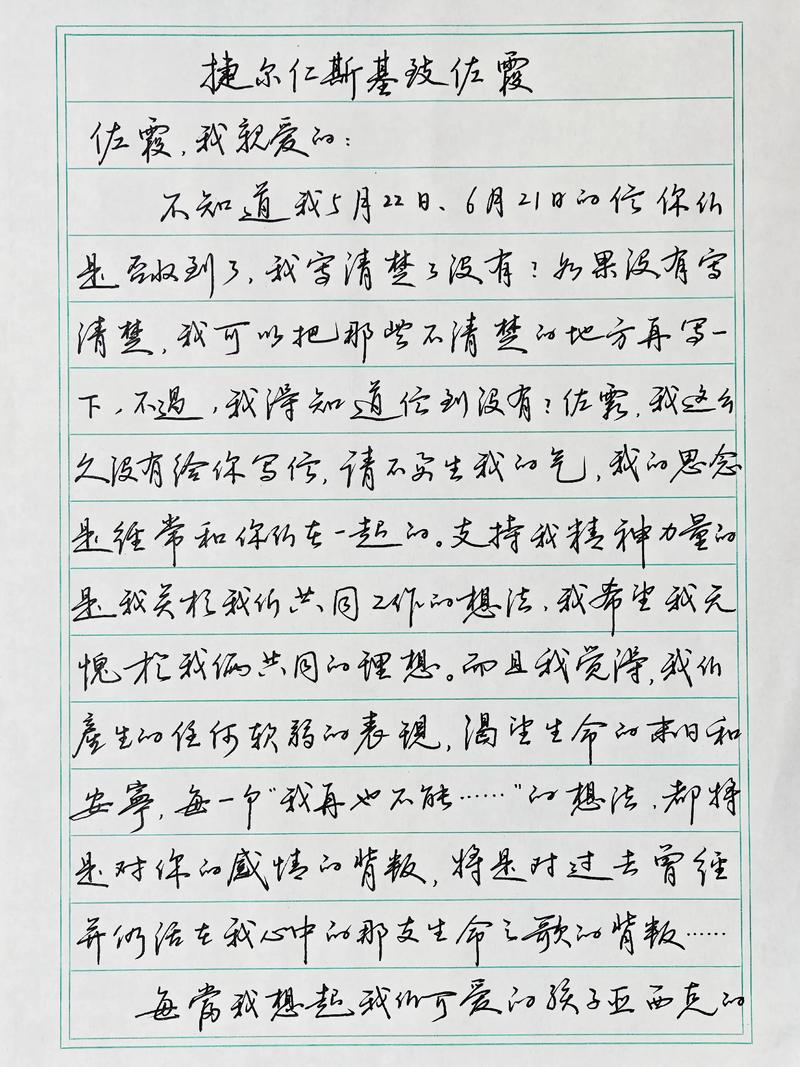 捷尔仁斯基致佐霞
佐霞，我亲爱的：
不知道我5月22日、6月21日的信你们
是否收到了，我写清楚了没有？如果没有写
清楚，我可以把那些不清楚的地方再写一
下，不过，我得知道信到没有？佐霞，我这么
久没有给你写信，请不要生我的气，我的思念
是经常和你们在一起的。支持我精神力量的
是我关於我们共同工作的想法，我希望我无
愧於我俩共同的理想。而且我觉得，我们
產生的任何软弱的表現，渴望生命的末日和
安寧，每一个“我再也不能……”的想法，都将
是对你的感情的背叛，将是对过去曾经
并仍活在我心中的那支生命之歌的背叛……
每當我想起我们可爱的孩子亚西克的